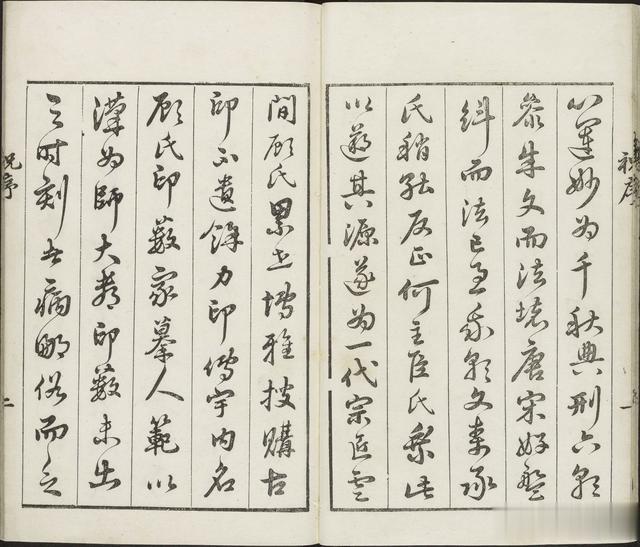 以運妙為千秋典刑六朝
參朱文而法壞唐宋好盤
糾而法已亡我朝文壽承
氏稍能反正何主臣氏乘此
以遡其源遂為一代宗匠雲
間顧氏累世博雅搜購古
印不遺餘力印傳宇內名
顧氏印藪家摹人範以
漢為師大都印藪未出
之時刻者病鄙俗而
序
二